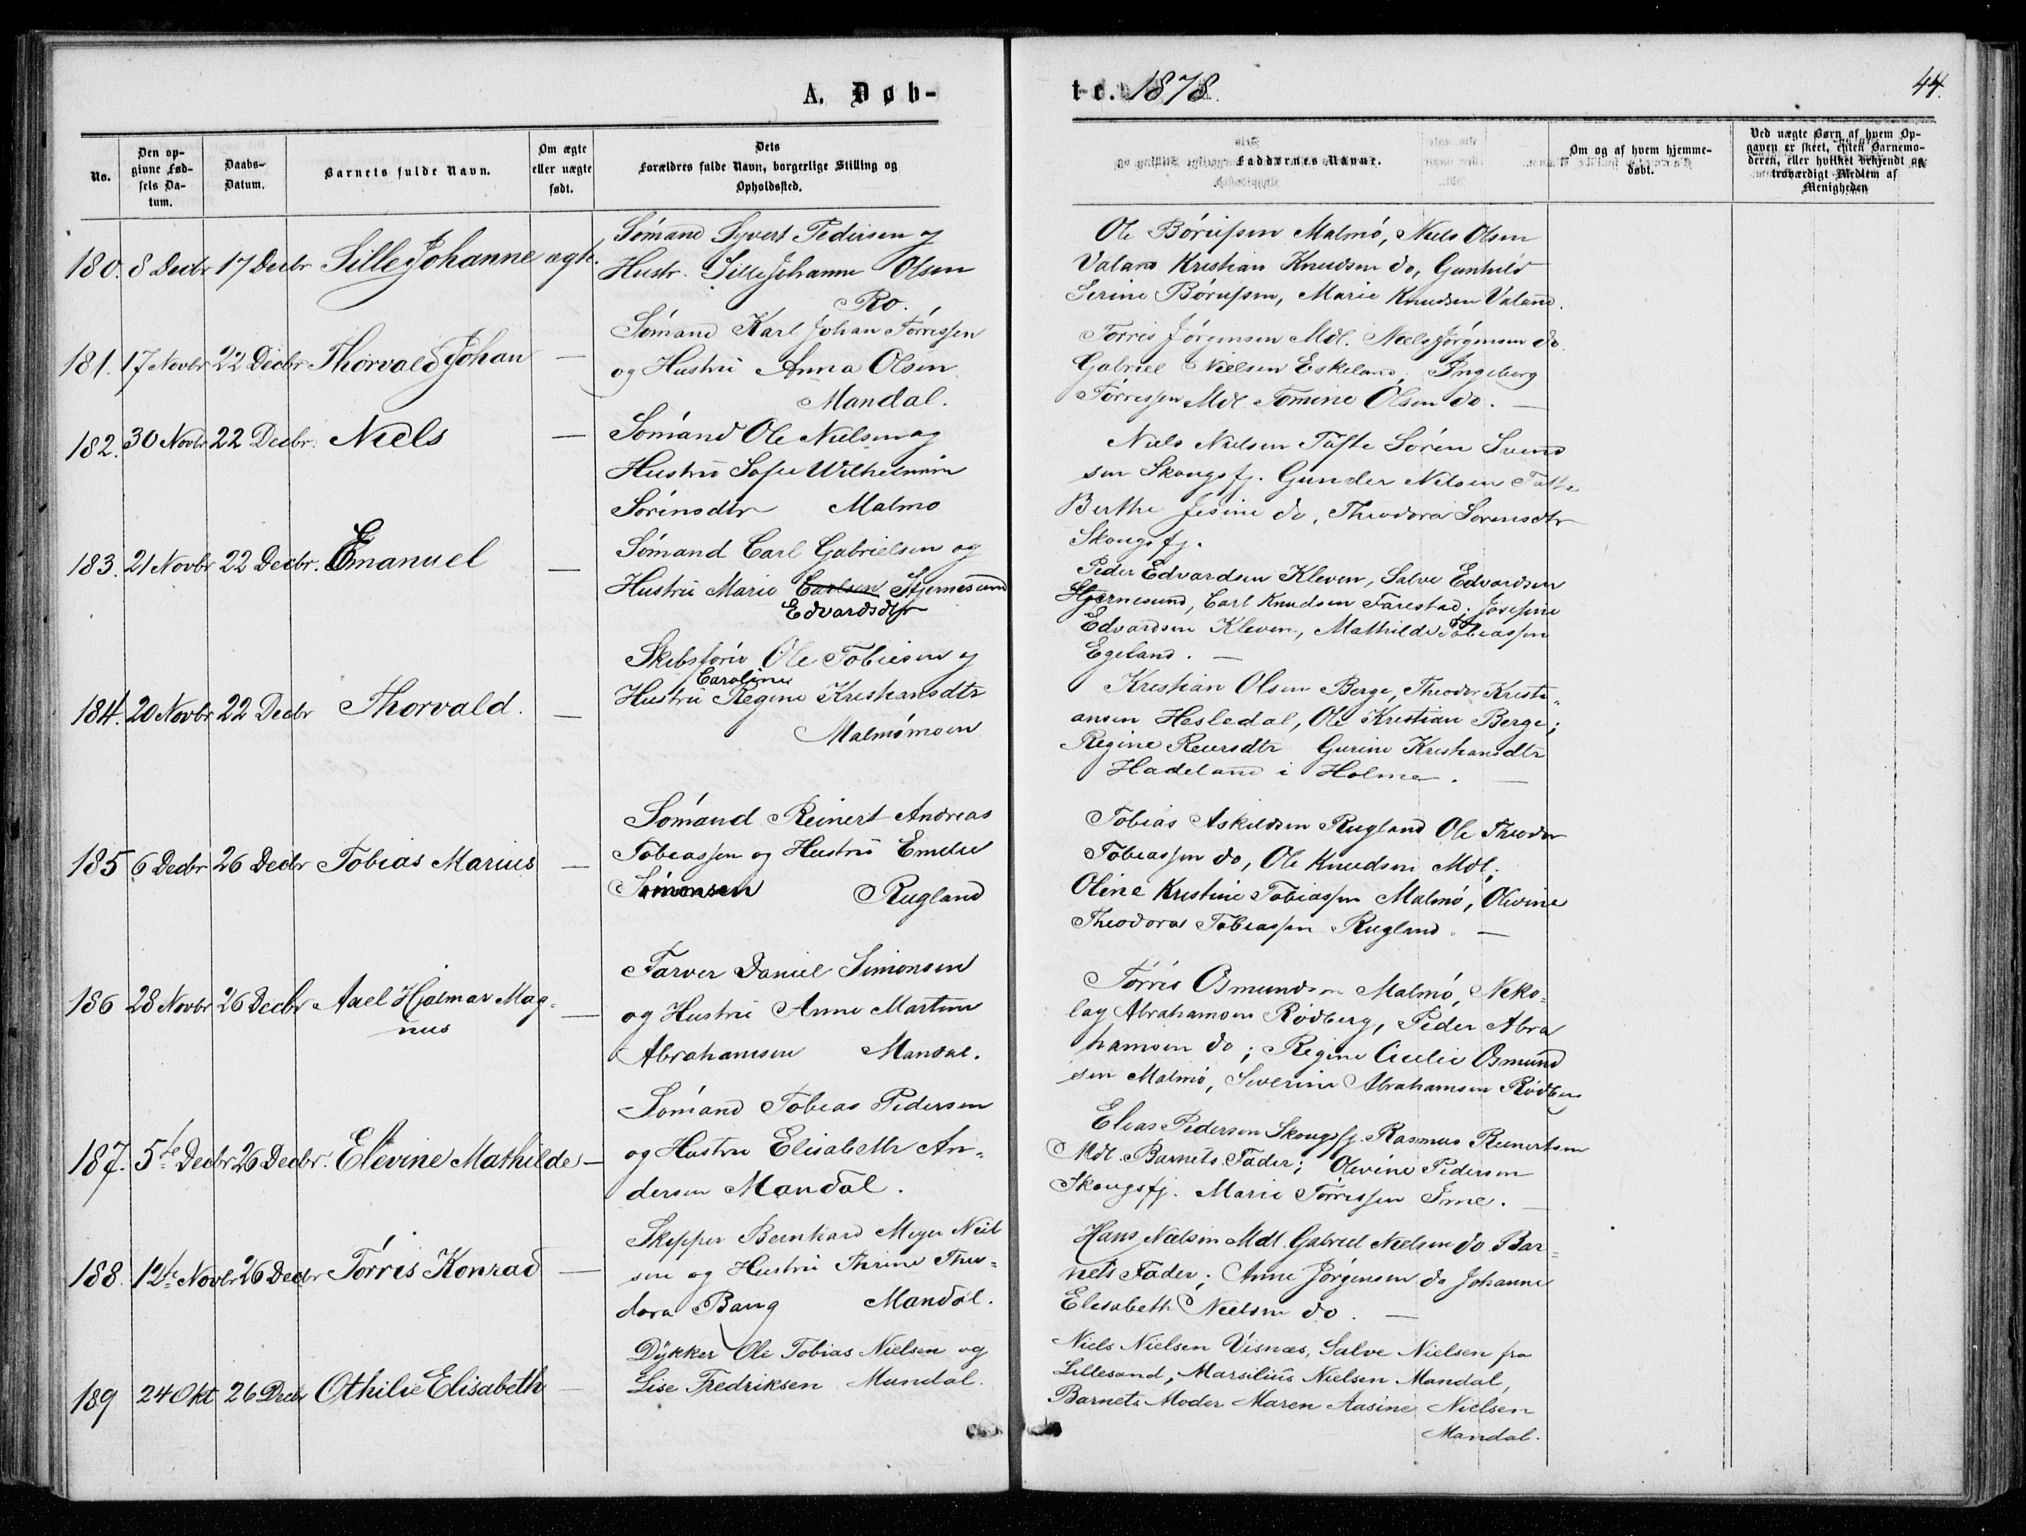 A. Døb-
te. 1878.
44.
No.
Den opgivne Fødsels Datum.
Daabs-Datum.
Barnets fulde Navn.
Om ægte eller uægte født.
Dets Forældres fulde Navn, borgerlige Stilling og Opholdssted.
Faddernes Navne.
Om og af hvem hjemmedøbt.
Ved uægte Børn af hvem Opgaven er skeet, enten Barnemoderen, eller hvilket bekjendt og troværdigt Medlem af Menigheden
180. 8 Decbr 17 Decbr Sille Johanne ægte.
Sømand Syvert Pedersen og
Hustr. Sille Johanne Olsen
Ro.
Ole Børufsen Malmø, Niels Olsen
Valand Kristian Knudsen do, Gunhild
Serine Børufsen, Marie Knudsen Valand.
181. 17 Novbr 22 Decbr Thorvald Johan —
Sømand Karl Johan Tørressen
og Hustru Anna Olsen
Mandal.
Torris Jørgensen Mdl. Niels Jørgensen do.
Gabriel Nielsen Eskeland, Ingeborg
Tørressen Mdl Tomine Olsen do. —
182. 30 Novbr 22 Decbr. Niels —
Sømand Ole Nielsen og
Hustru Sofie Wilhelmine
Sørensdtr Malmø
Niels Nielsen Tofte Søren Svend
sen Skougsfj. Gunder Nilsen Tofte
Berthe Jesine do, Theodora Sørensdtr
Skougsfj.
183. 21 Novbr 22 Decbr. Emanuel —
Sømand Carl Gabrielsen og
Hustru Marie Carlsen Hjernesund
Edvardsdtr
Peder Edvardsen Kleven, Salve Edvardsen
Hjernesund, Carl Knudsen Farestad, Josefine
Edvardsen Kleven, Mathilde Tobiassen
Egeland. —
184. 20 Novbr 22 Decbr Thorvald. —
Skibsfører Ole Tobiesen og
Caroline
Hustru Regine Kristiansdtr
Malmømoen
Kristian Olsen Berge, Theodor Kristi-
ansen Hesledal, Ole Kristian Berge;
Regine Reiersdtr Gurine Kristiansdtr
Hadeland i Holme. —
185 6 Decbr 26 Decbr Tobias Marius —
Sømand Reinert Andreas
Tobiassen og Hustru Emelie
Simonsen Rugland
Tobias Askildsen Rugland Ole Theodor
Tobiassen do, Ole Knudsen Mdl,
Oline Kristine Tobiassen Malmø, Olevine
Theodora Tobiassen Rugland. —
186 28 Novbr 26 Decbr Axel Hjalmar Mag-
nus —
Farver Daniel Simonsen
og Hustru Anne Martine
Abrahamsen Mandal.
Tørris Osmundsen Malmø, Neko-
lay Abrahamsen Rødberg, Peder Abra
hamsen do; Regine Cicelie Osmund
sen Malmø, Severine Abrahamsen Rødberg
187. 5te Decbr 26 Decbr. Elevine Mathilde —
Sømand Tobias Pedersen
og Hustru Elisabeth An-
dersen Mandal.
Elias Pedersen Skougsfj. Rasmus Reinertsen
Mdl. Barnets Fader; Olevine Pedersen
Skougsfj. Marie Tørressen Ime. —
188. 12te Novbr 26 Decbr Tørris Konrad —
Skipper Bernhard Meyer Niel
sen og Hustru Thrine Theo-
dora Bang Mandal.
Hans Nielsen Mdl. Gabriel Nielsen do Bar-
nets Fader; Anne Jørgensen do Johanne
Elisabeth Nielsen do. —
189 24 Okt 26 Decbr Othilie Elisabeth —
Dykker Ole Tobias Nielsen og
Lise Fredriksen Mandal.
Niels Nielsen Visnæs, Salve Nielsen fra
Lillesand, Marsilius Nielsen Mandal,
Barnets Moder Maren Aasine Nielsen
Mandal.